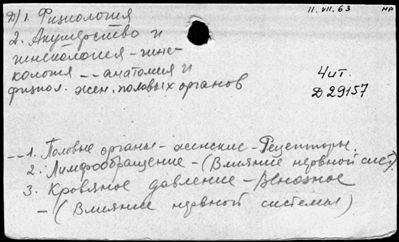 Д/1 Физиология
11.VII.63 НР
2. Акушерство и
гинекология - гине-
кология -- анатомия и
физиол. жен. половых органов
Чит.
Д 29157
-- 1. Половые органы - женские - Рецепторы.
2. Лимфообращение - (Влияние нервной сист.)
3. Кровяное давление - Венозное
- (Влияние нервной системы)